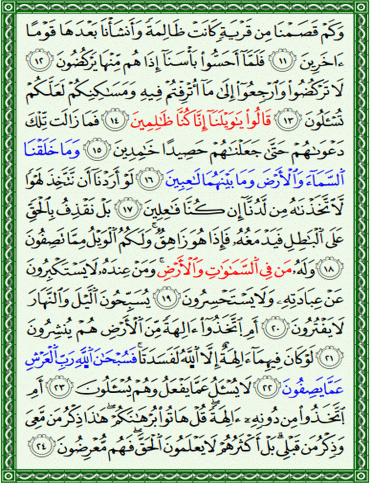 وَكَمْ قَصَمْنَا مِن قَرْيَةٍ كَانَتْ ظَالِمَةً وَأَنشَأْنَا بَعْدَهَا قَوْمًا
ءَاخَرِينَ ١١ فَلَمَّآ أَحَسُّوا۟ بَأْسَنَآ إِذَا هُم مِّنْهَا يَرْكُضُونَ ١٢
لَا تَرْكُضُوا۟ وَٱرْجِعُوٓا۟ إِلَىٰ مَآ أُتْرِفْتُمْ فِيهِ وَمَسَٰكِنِكُمْ لَعَلَّكُمْ
تُسْـَٔلُونَ ١٣ قَالُوا۟ يَٰوَيْلَنَآ إِنَّا كُنَّا ظَٰلِمِينَ ١٤ فَمَا زَالَت تِّلْكَ
دَعْوَىٰهُمْ حَتَّىٰ جَعَلْنَٰهُمْ حَصِيدًا خَٰمِدِينَ ١٥ وَمَا خَلَقْنَا
ٱلسَّمَآءَ وَٱلْأَرْضَ وَمَا بَيْنَهُمَا لَٰعِبِينَ ١٦ لَوْ أَرَدْنَآ أَن نَّتَّخِذَ لَهْوًا
لَّٱتَّخَذْنَٰهُ مِن لَّدُنَّآ إِن كُنَّا فَٰعِلِينَ ١٧ بَلْ نَقْذِفُ بِٱلْحَقِّ
عَلَى ٱلْبَٰطِلِ فَيَدْمَغُهُۥ فَإِذَا هُوَ زَاهِقٌ ۚ وَلَكُمُ ٱلْوَيْلُ مِمَّا تَصِفُونَ
١٨ وَلَهُۥ مَن فِى ٱلسَّمَٰوَٰتِ وَٱلْأَرْضِ ۚ وَمَنْ عِندَهُۥ لَا يَسْتَكْبِرُونَ
عَنْ عِبَادَتِهِۦ وَلَا يَسْتَحْسِرُونَ ١٩ يُسَبِّحُونَ ٱلَّيْلَ وَٱلنَّهَارَ
لَا يَفْتُرُونَ ٢٠ أَمِ ٱتَّخَذُوٓا۟ ءَالِهَةً مِّنَ ٱلْأَرْضِ هُمْ يُنشِرُونَ
٢١ لَوْ كَانَ فِيهِمَآ ءَالِهَةٌ إِلَّا ٱللَّهُ لَفَسَدَتَا ۚ فَسُبْحَٰنَ ٱللَّهِ رَبِّ ٱلْعَرْشِ
عَمَّا يَصِفُونَ ٢٢ لَا يُسْـَٔلُ عَمَّا يَفْعَلُ وَهُمْ يُسْـَٔلُونَ ٢٣ أَمِ
ٱتَّخَذُوا۟ مِن دُونِهِۦٓ ءَالِهَةً ۖ قُلْ هَاتُوا۟ بُرْهَٰنَكُمْ ۖ هَٰذَا ذِكْرُ مَن مَّعِىَ
وَذِكْرُ مَن قَبْلِى ۗ بَلْ أَكْثَرُهُمْ لَا يَعْلَمُونَ ٱلْحَقَّ ۖ فَهُم مُّعْرِضُونَ ٢٤